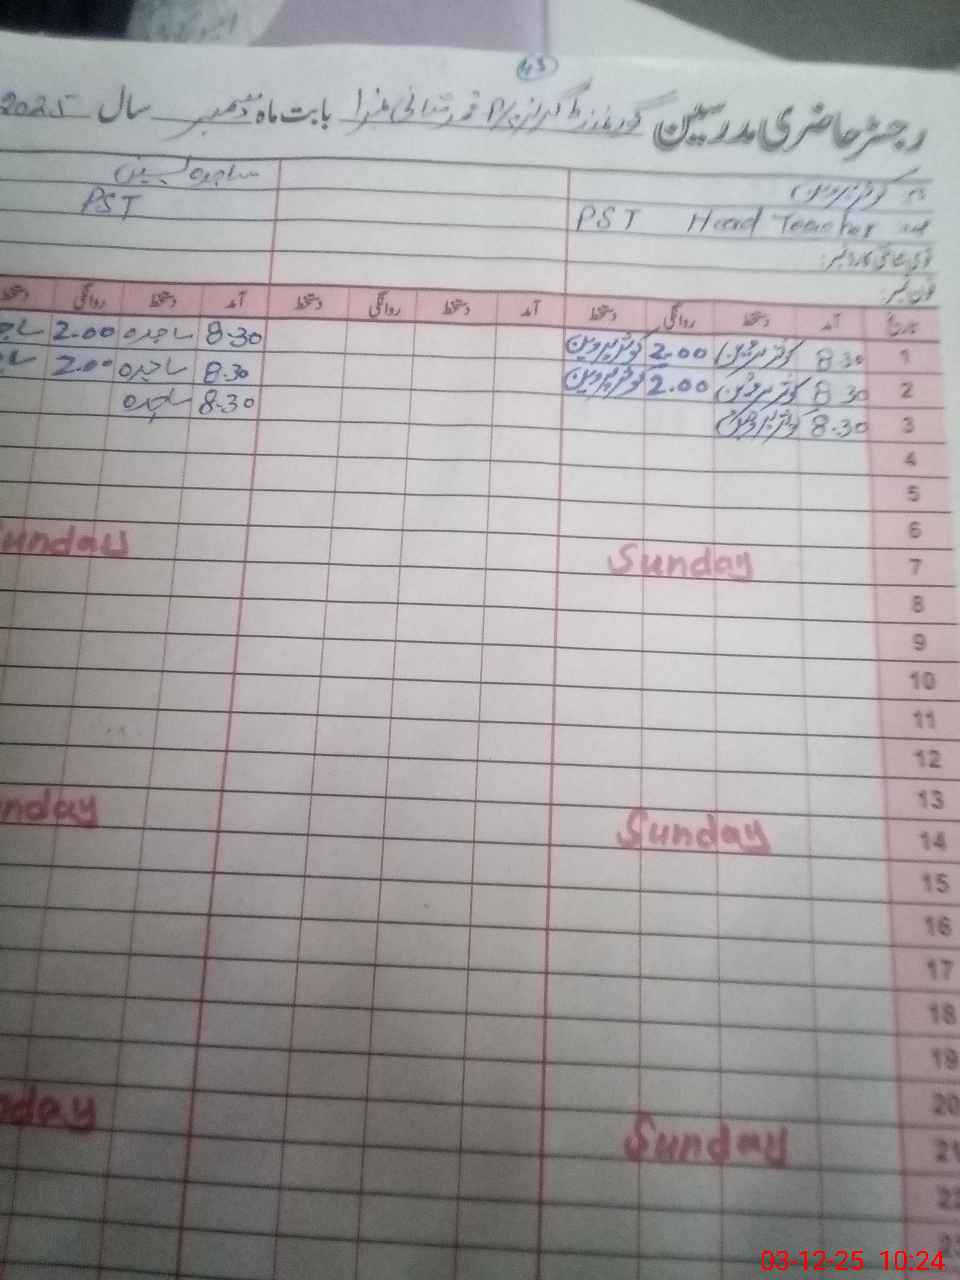 43
رجسٹر حاضری مدرسین گورنمنٹ گرلز P/S بابت ماہ دسمبر سال 2025
نام کوثر پروین ساجدہ
عہدہ PST Head Teacher PST
قومی شناختی کارڈ نمبر:
فون نمبر:
تاریخ آمد دستخط روانگی دستخط آمد دستخط روانگی دستخط آمد دستخط روانگی دستخط
1 8.30 کوثر پروین 2.00 کوثر پروین 8.30 ساجدہ 2.00
2 8.30 کوثر پروین 2.00 کوثر پروین 8.30 ساجدہ 2.00
3 8.30 کوثر پروین 8.30 ساجدہ
4
5
6
7 Sunday Sunday
8
9
10
11
12
13
14 Sunday nday
15
16
17
18
19
20
21 Sunday day
22
23
03-12-25 10:24